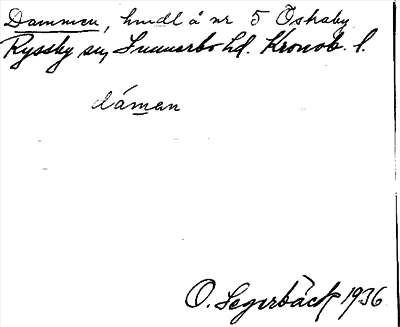 Dammen, hmdl å nr 5 Östraby
Ryssby sn, Sunnerbo hd. Kronob. l.
dáman
O. Segerbäck 1936